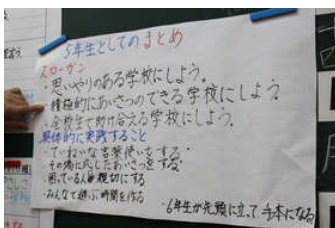 5年生としてのまとめ
スローガン
・思いやりのある学校にしよう。
・積極的にあいさつのできる学校にしよう。
・全校生で助け合える学校にしよう。
具体的に実践すること
・ていねいな言葉使いをする。
・その場に応じたあいさつをする。
・困っている人に親切にする
・みんなで遊ぶ時間を作る
・6年生が先頭に立って手本になる